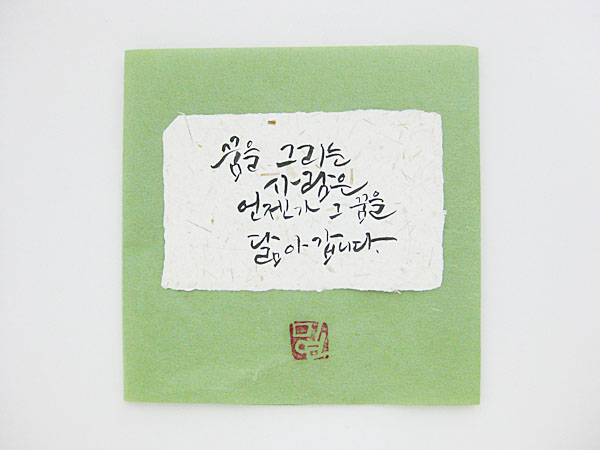 꿈을 그리는
사람은
언젠가 그 꿈을
닮아 갑니다.